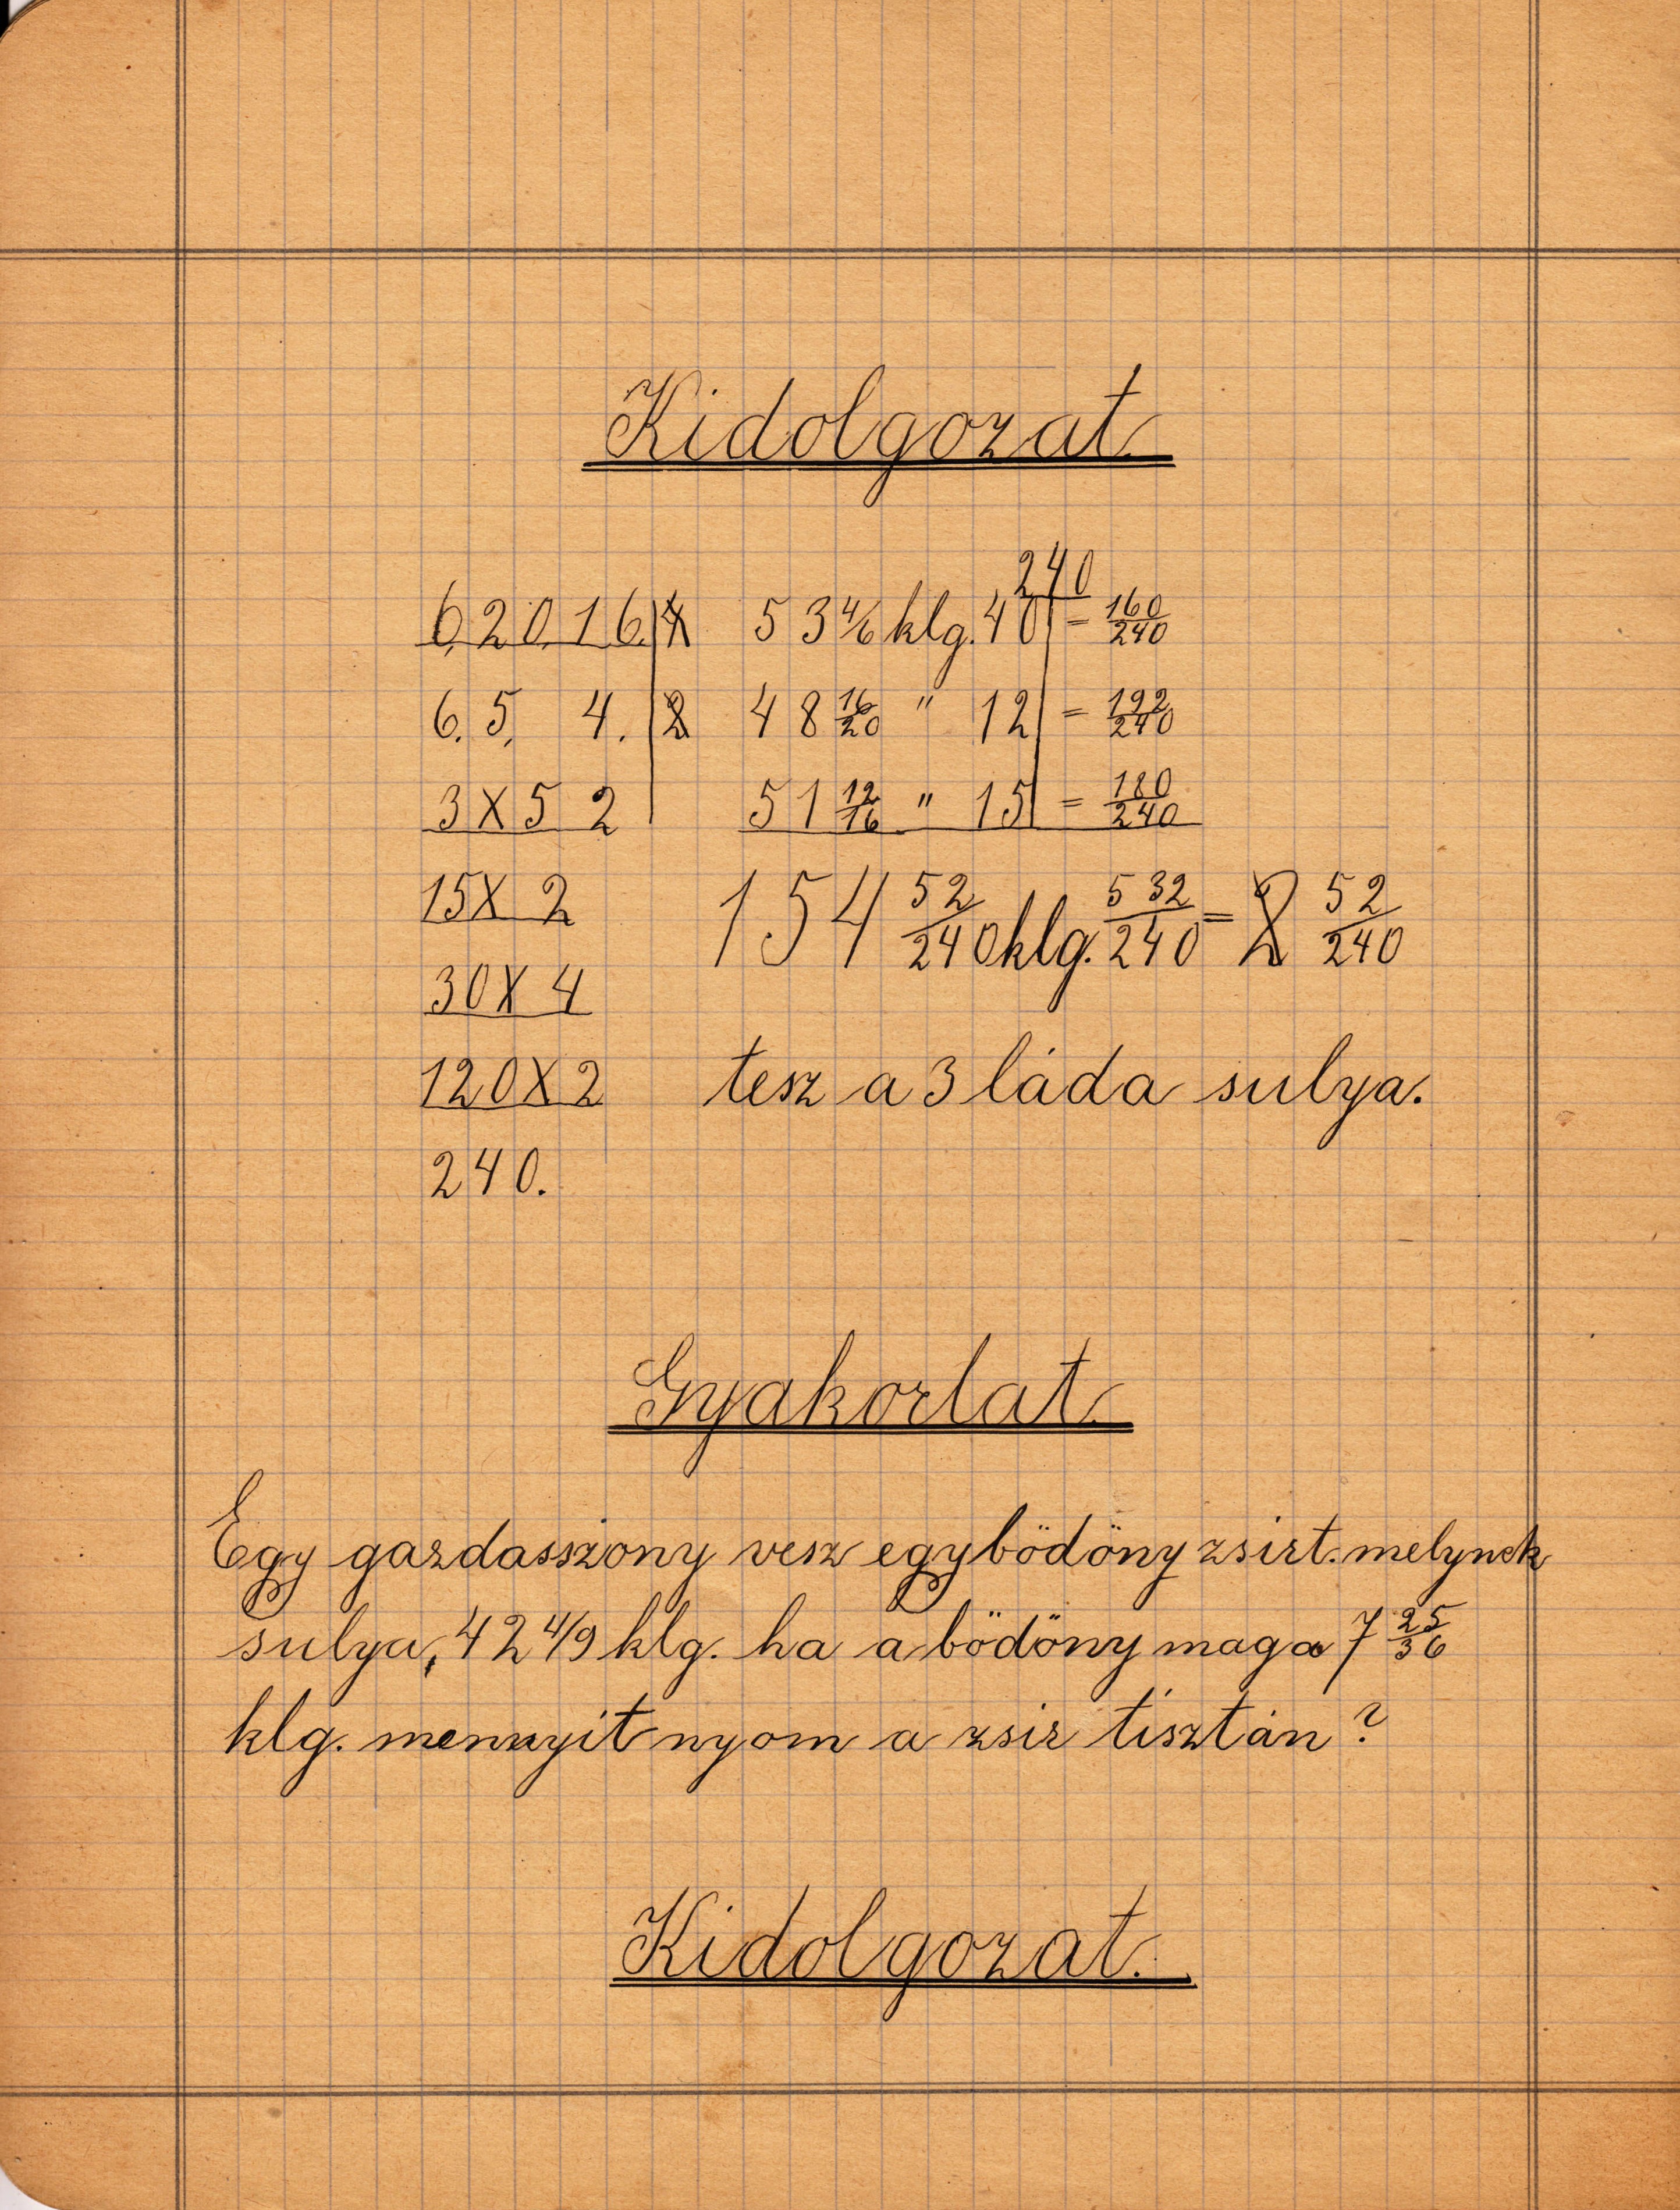 Kidolgozat
240
6, 20, 16. | 4 53 4/6 klg. 40 | = 160/240
6, 5, 4. | 2 48 16/20 " 12 | = 192/240
3 X 5 2 | 51 12/16 " 15 | = 180/240
15 X 2 154 52/240 klg. 532/240 = 2 52/240
30 X 4
120 X 2 tesz a 3 láda sulya.
240.
Gyakorlat
Egy gazdasszony vesz egy bödöny zsirt. melynek
sulya, 42 4/9 klg. ha a bödöny maga 7 25/36
klg. mennyit nyom a zsir tisztán?
Kidolgozat.